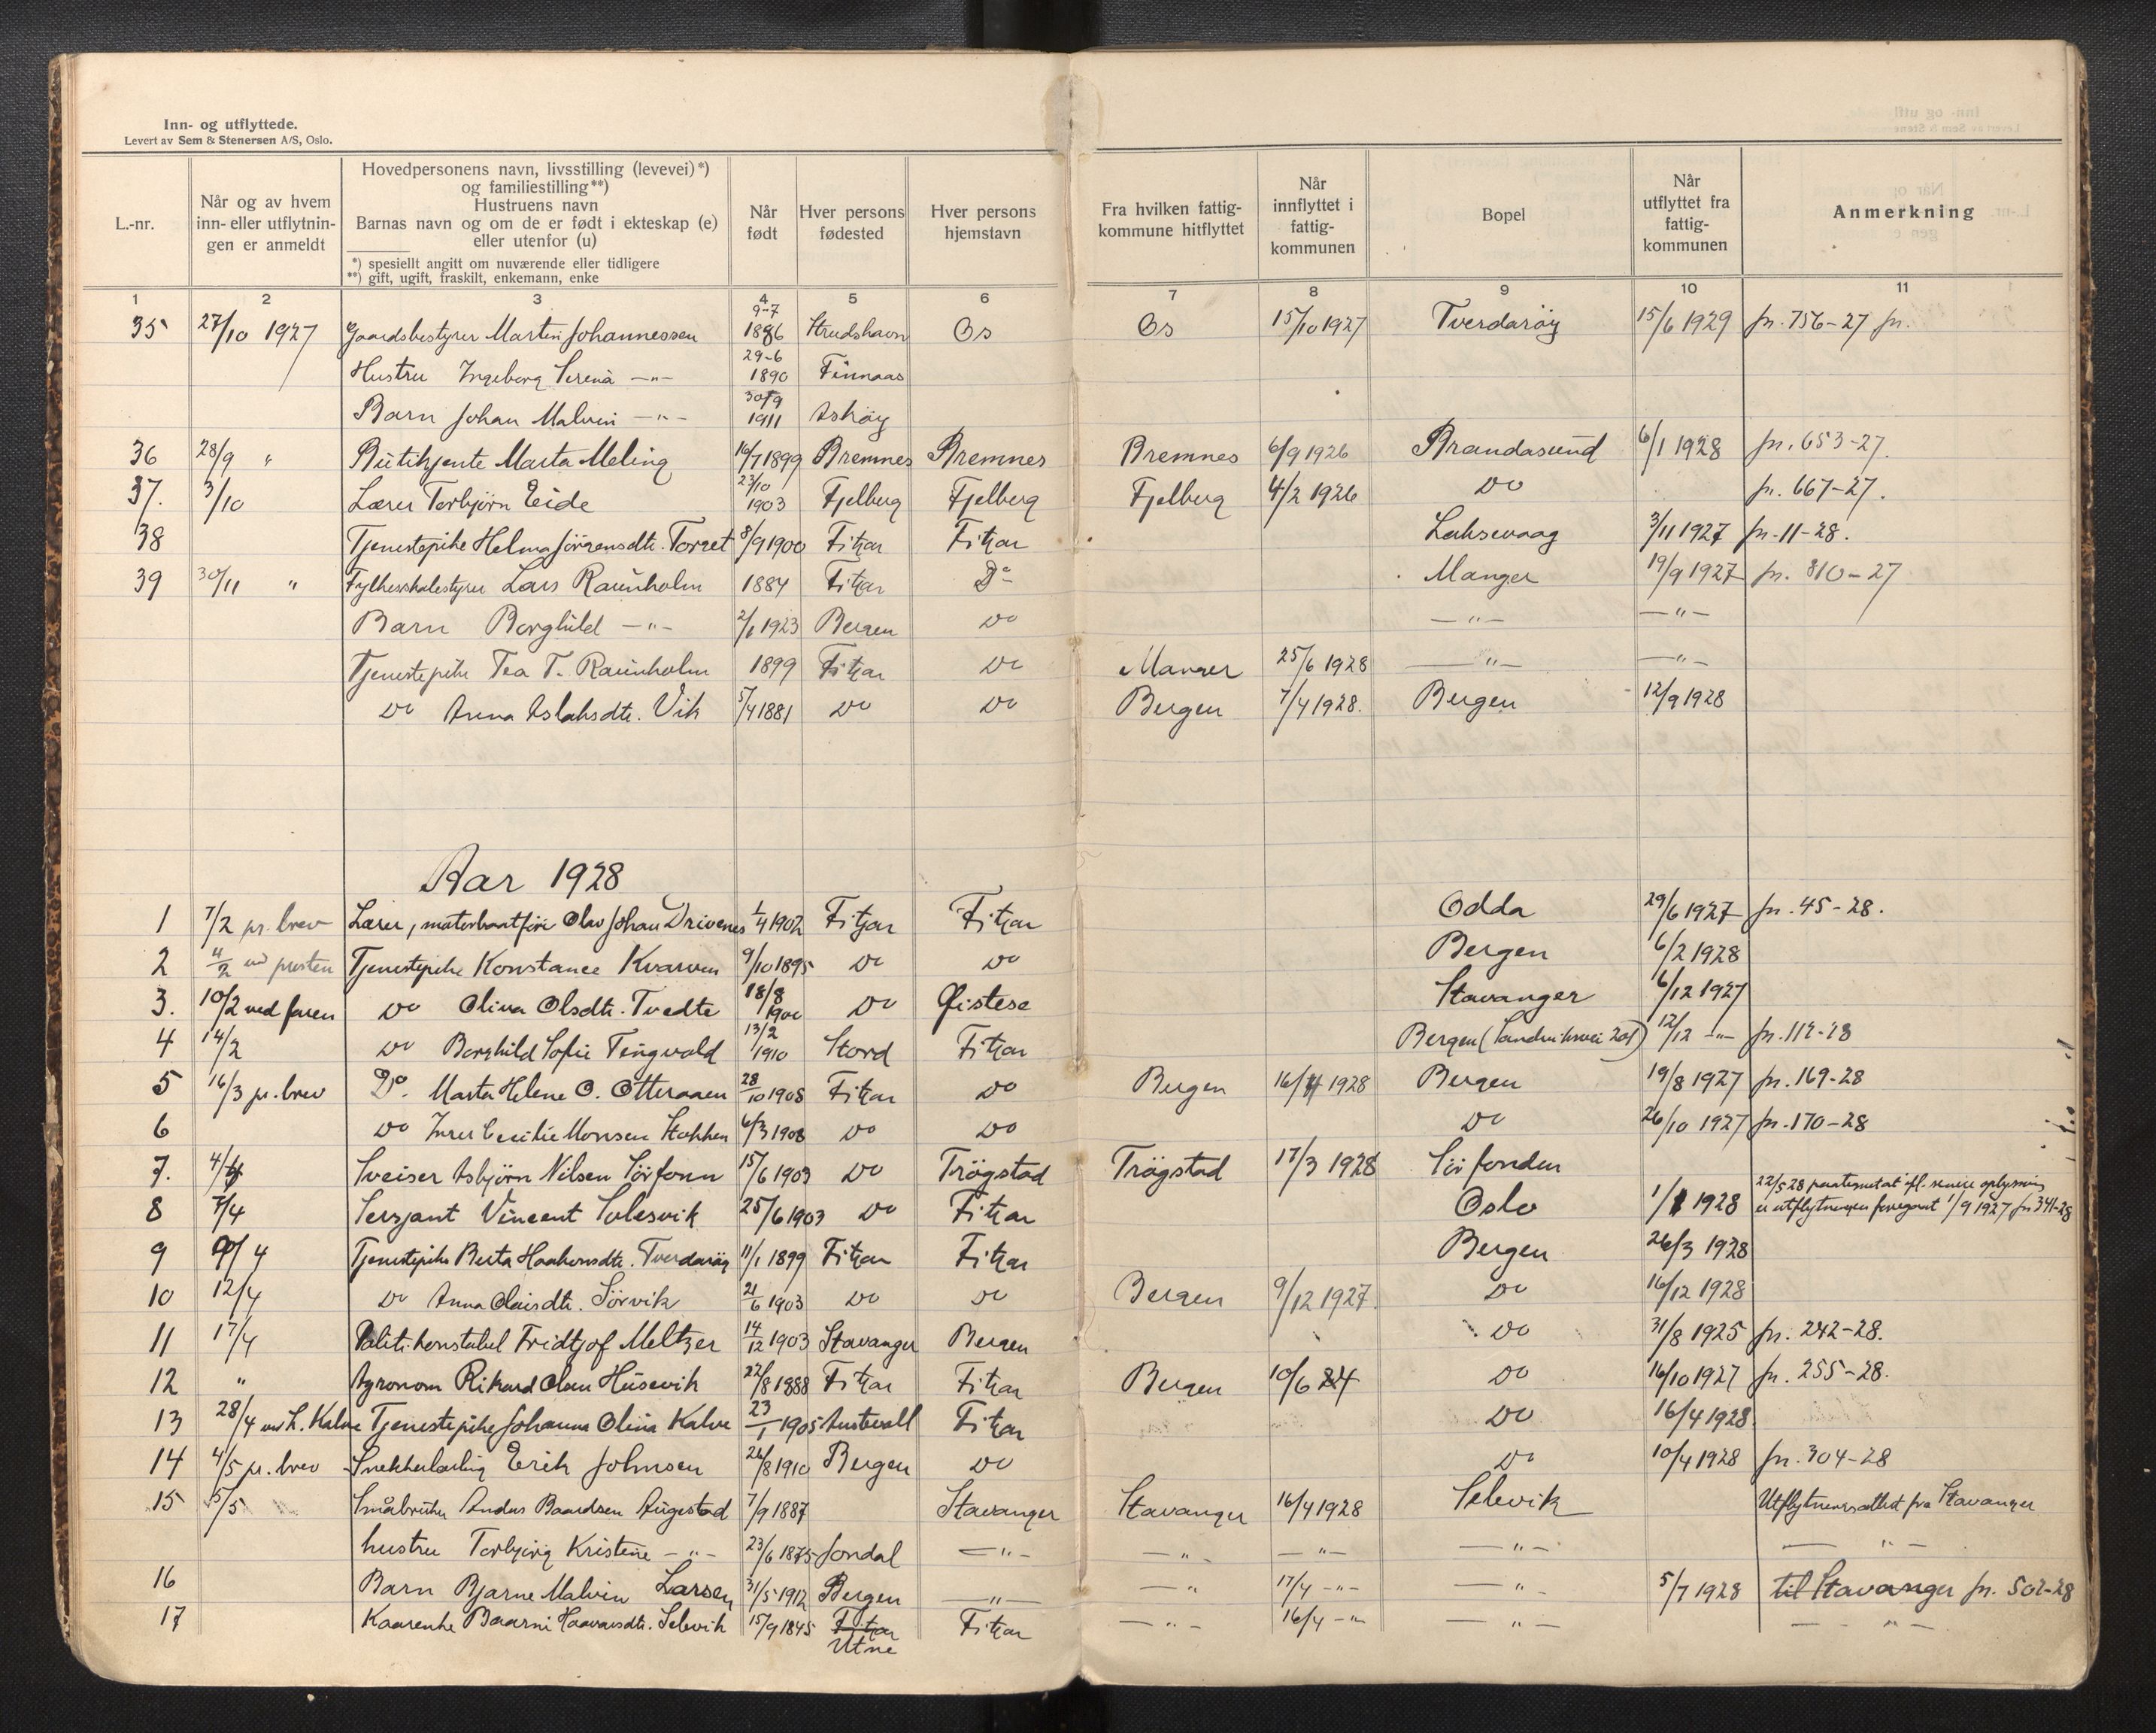 Inn- og utflyttede.
Levert av Sem & Stenersen A/S, Oslo.
L.-nr.
Når og av hvem inn- eller utflytnin-gen er anmeldt
Hovedpersonens navn, livsstilling (levevei)*)
og familiestilling**)
Hustruens navn
Barnas navn og om de er født i ekteskap (e)
eller utenfor (u)
*) spesiellt angitt om nuværende eller tidligere
**) gift, ugift, fraskilt, enkemann, enke
Når født
Hver persons fødested
Hver persons hjemstavn
Fra hvilken fattig-kommune hitflyttet
Når innflyttet i fattig-kommunen
Bopel
Når utflyttet fra fattig-kommunen
Anmerkning
1 2 3 4 5 6 7 8 9 10 11
35 27/10 1927 Gaardsbestyrer Martin Johannessen 9-7 1886 Strudshavn Os Os 15/10 1927 Tverdarøy 15/6 1929 jn. 756-27 jn.
Hustru Ingeborg Serena -"- 29-6 1890 Finnaas
Barn Johan Malvin -"- 30/9 1911 Askøy
36 28/9 " Butikjente Marta Meling 16/7 1899 Bremnes Bremnes Bremnes 6/9 1926 Brandasund 6/1 1928 jn. 653-27.
37. 3/10 Lærer Torbjørn Eide 23/10 1903 Fjelberg Fjelberg Fjelberg 4/2 1926 Do jn. 667-27.
38 Tjenestepike Helma Jörgensdtr. Torget 8/9 1900 Fitjar Fitjar Laksevaag 3/11 1927 jn. 11-28.
39 30/11 " Fylkesskolestyrer Lars Raunholm 1884 Fitjar Do Manger 19/9 1927 jn. 810-27
Barn Borghild -"- 2/6 1923 Bergen Do -"- -"-
Tjenestepike Tea T. Raunholm 1899 Fitjar Do Manger 25/6 1928 -"- -"-
Do Anna Aslaksdtr. Vik 5/4 1881 Do Do Bergen 7/4 1928. Bergen 12/9 1928
Aar 1928
1 7/2 pr. brev Lærer, motorbaatförer Olav Johan Drivenes 1/4 1902 Fitjar Fitjar Odda 29/6 1927 jn. 45-28.
2 4/2 ved presten Tjenestepike Konstance Kvarven 9/10 1895 Do Do Bergen 6/2 1928
3. 10/2 ved faren Do Oliva Olsdtr. Tvedte 18/8 1900 Do Øistese Stavanger 6/12 1927
4 14/2 Do Borghild Sofie Tingvold 13/2 1910 Stord Fitjar Bergen 12/12 -"- jn. 112-28
5 16/3 pr. brev Do. Marta Helene O. Otteraaen 28/10 1908 Fitjar Do Bergen 16/4 1928 Bergen 19/8 1927 jn. 169-28
6 Do Inger Cecilie Monsen Stokken 6/3 1908 Do Do Do 26/10 1927 jn. 170-28
7. 4/4 Sveiser Asbjørn Nilsen Sörfonn 15/6 1903 Do Trögstad Trögstad 17/3 1928 Sörfonden
8 7/4 Serzjant Vincent Solesvik 25/6 1903 Do Fitjar Oslo 1/1 1928 22/5 28 senere oplysning er utflytningen foregaat 1/9 1927 jn 341-28
9 9/4 Tjenestepike Berta Haakonsdtr. Tverdarøy 11/1 1899 Fitjar Fitjar Bergen 26/3 1928
10 12/4 Do Anna Olaisdtr. Sörvik 21/6 1903 Do Do Bergen 9/12 1927. Do 16/12 1928
11 17/4 Politikonstabel Fridtjof Meltzer 14/12 1903 Stavanger Bergen Do 31/8 1925 jn. 242-28.
12 " Agronom Rikard Olsen Husevik 22/8 1888 Fitjar Fitjar Bergen 10/6 24 Do 16/10 1927 jn. 255-28.
13 28/4 ved L. Kalve Tjenestepike Johanna Olina Kalve 23/1 1905 Austevoll Fitjar Do 16/4 1928
14 4/5 pr. brev Snekkerlærling Erik Johnsen 26/8 1910 Bergen Do Do 10/4 1928 jn. 304-28
15 5/5 Småbruker Anders Baardsen Augestad 7/9 1887 Stavanger Stavanger 16/4 1928 Selevik Utflytningsattest fra Stavanger
hustru Torbjørg Kristine -"- 23/6 1875 Jondal -"- -"- -"- -"- -"-
16 Barn Bjarne Malvin Larsen 31/5 1912 Bergen -"- -"- 17/4 -"- -"- 5/7 1928 til Stavanger jn. 502-28
17 Kaarenke Baarni Haavarsdtr. Selevik 15/9 1845 Fitjar Utne Fitjar -"- 16/4 -"- -"- -"-